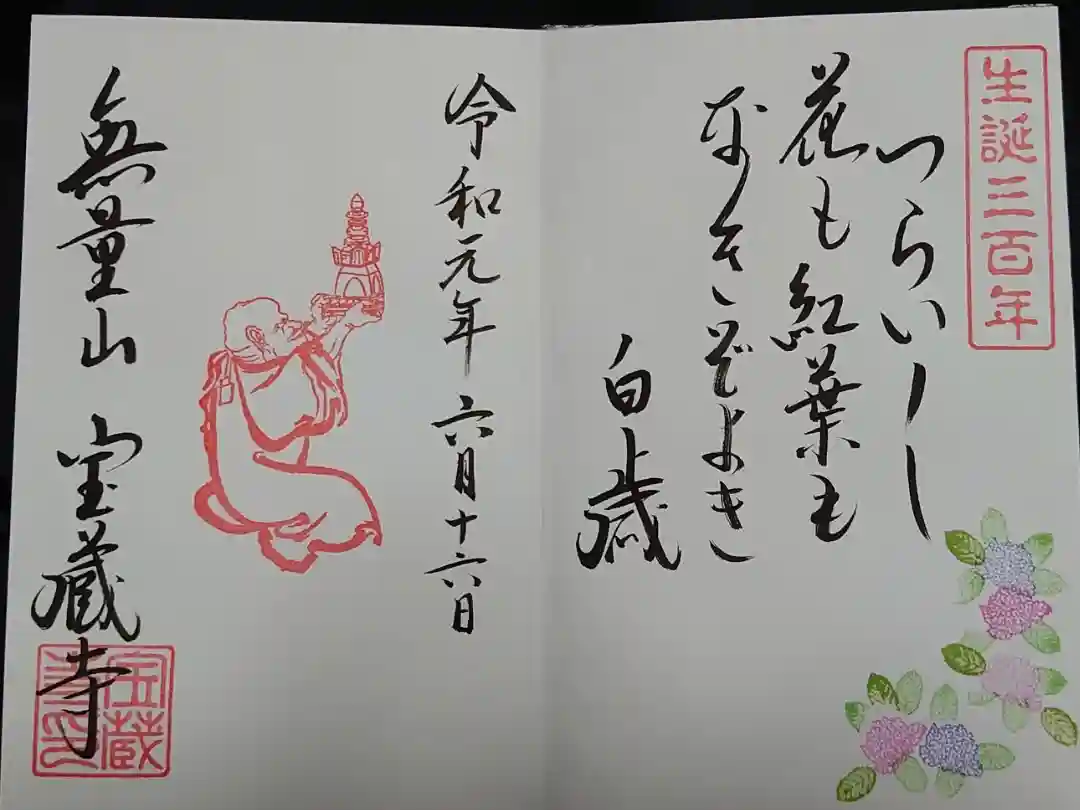 生誕三百年
つらい
花も紅葉も
なきぞよき
白歳
令和元年 六月十六日
無量山 宝蔵寺
宝蔵
寺印